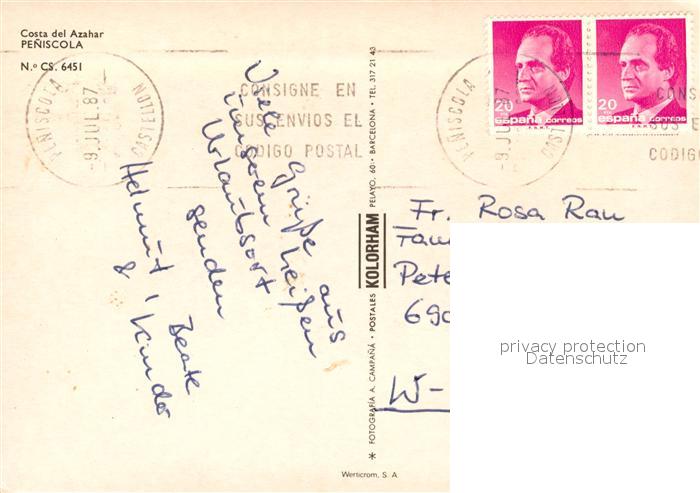 Costa del Azahar
PEÑISCOLA
N.º CS. 6451
PEÑISCOLA
-9 JUL 87
CASTELLON
CONSIGNE EN
SUS ENVIOS EL
CODIGO POSTAL
Viele Grüße aus
unserem heißen
Urlaubsort
senden
Beate
Helmut,
& Kinder
FOTOGRAFÍA A. CAMPAÑÁ • POSTALES KOLORHAM PELAYO, 60 • BARCELONA • TEL. 317 21 43
Werticrom, S. A.
20
España correos
F.N.M.T.
20
España correos
F.N.M.T.
PEÑISCOLA
-9 JUL 87
CAST
CONS
SUS E
CODIGO
Fr. Rosa Rau
Fam
Pete
690
W-
privacy protection
Datenschutz